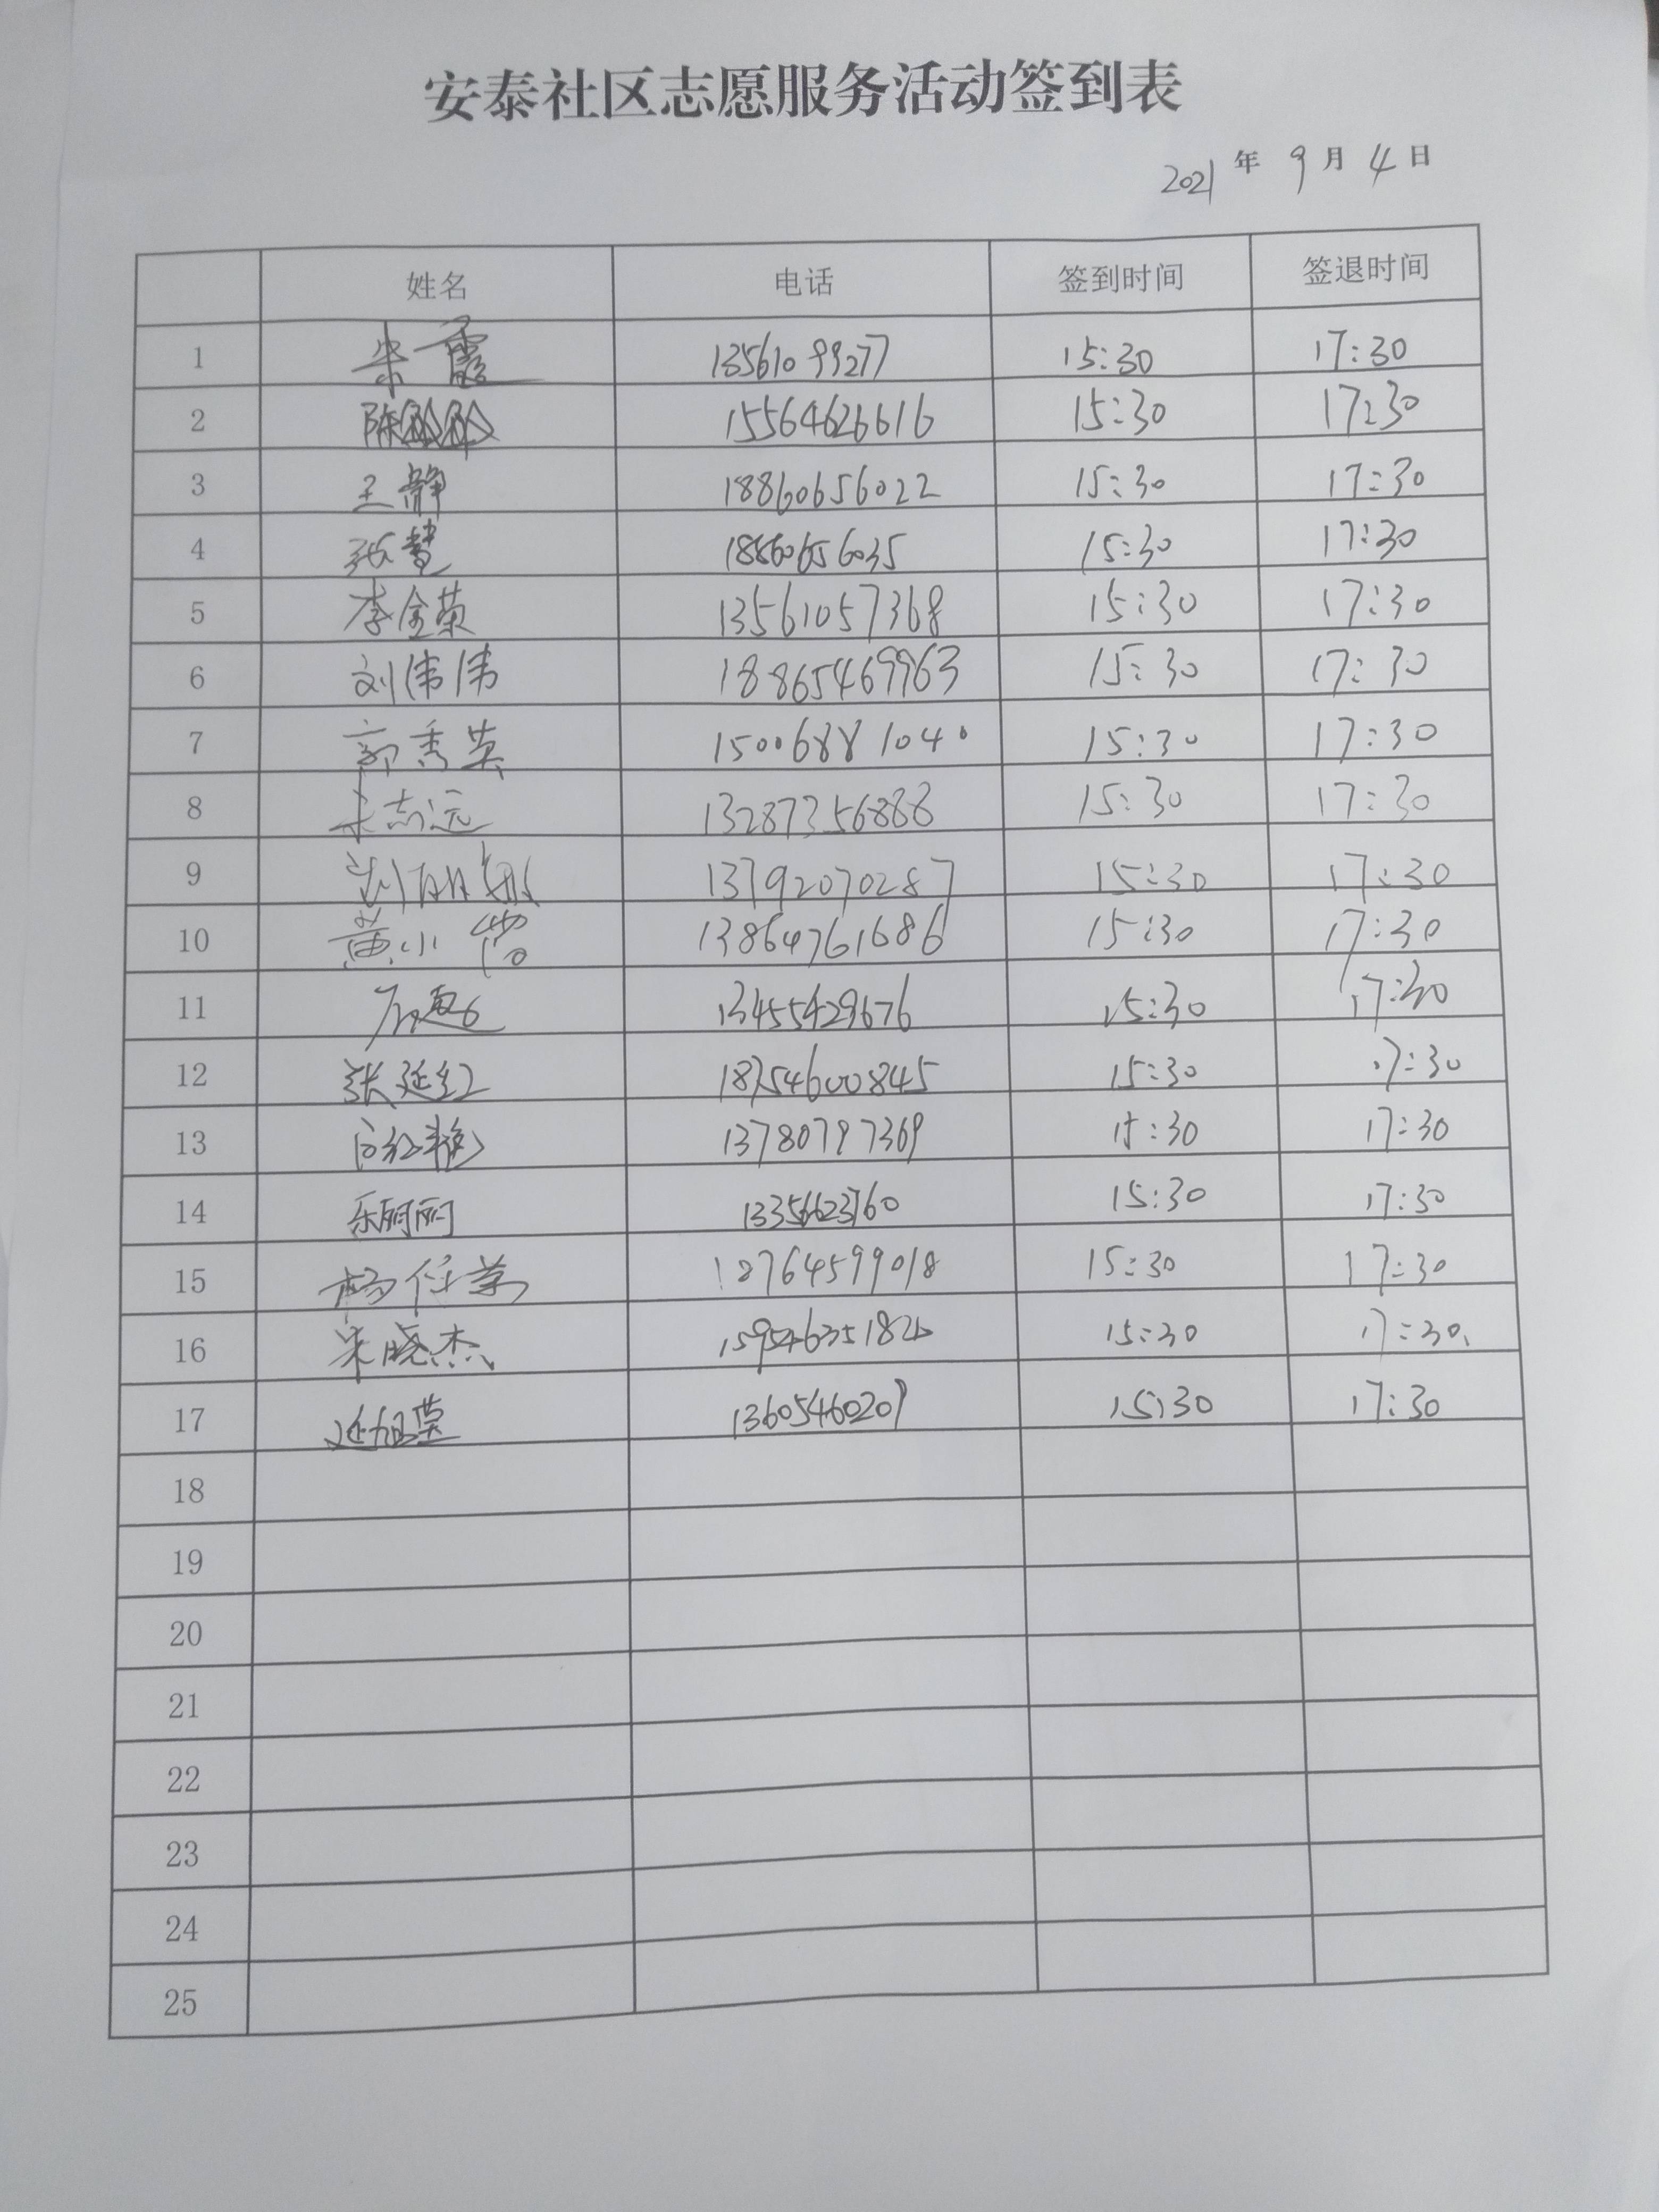 安泰社区志愿服务活动签到表
2021 年 9 月 4 日
姓名 电话 签到时间 签退时间
1 朱霞 13561099277 15:30 17:30
2 陈 15564626616 15:30 17:30
3 王静 18860656022 15:30 17:30
4 张慧 18860656035 15:30 17:30
5 李金荣 13561057368 15:30 17:30
6 刘伟伟 18865469963 15:30 17:30
7 郭秀英 15006881040 15:30 17:30
8 志远 13287356888 15:30 17:30
9 刘丽娜 13792070287 15:30 17:30
10 黄小 13864761686 15:30 17:30
11 13455429676 15:30 17:30
12 张延红 18754600845 15:30 17:30
13 13780797369 15:30 17:30
14 乐丽丽 13356623760 15:30 17:30
15 杨 18764599018 15:30 17:30
16 宋晓杰 15:30 17:30
17 13605460209 15:30 17:30
18
19
20
21
22
23
24
25